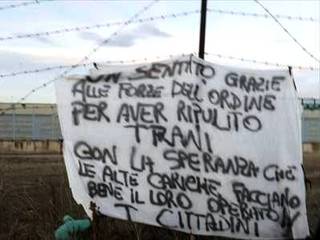 UN SENTITO GRAZIE
ALLE FORZE DELL'ORDINE
PER AVER RIPULITO
TRANI
CON LA SPERANZA CHE
LE ALTE CARICHE FACCIANO
BENE IL LORO OPERATO
I CITTADINI